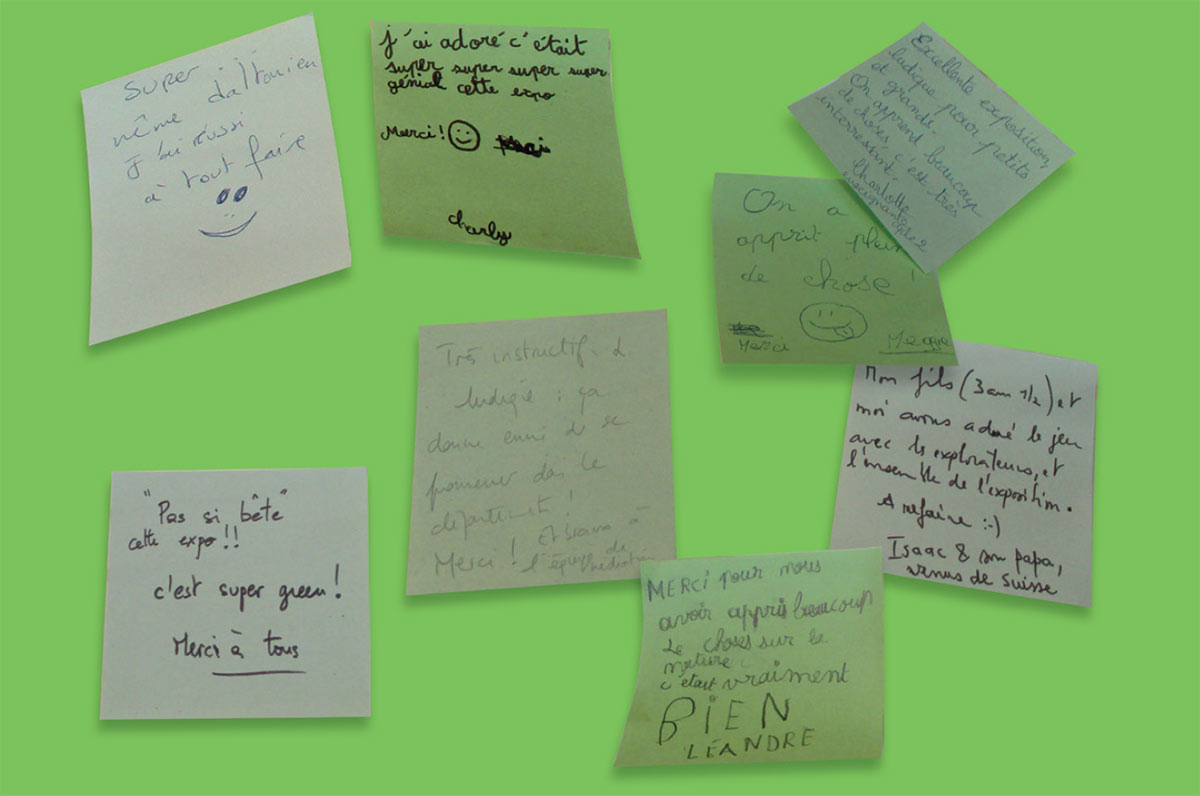 super
même daltonien
j'ai réussi
à tout faire
j'ai adoré c'était
super super super super
génial cette expo
Merci !
charly
Excellente exposition,
ludique pour petits
et grands.
On apprend beaucoup
de choses, c'est très
interressant.
Charlotte
enseignante
On a
apprit plein
de chose !
Merci
Mon fils (3 ans 1/2) et
moi avons adoré le jeu
avec les explorateurs, et
l'ensemble de l'exposition.
A refaire :-)
Isaac & son papa,
venus de Suisse
Très instructif &
ludique : ça
donne envie de se
promener dans le
département !
Merci ! Et bravo à
l'équipe de
médiation
"Pas si bête"
cette expo !!
c'est super green !
Merci à tous
MERCI pour nous
avoir appris beaucoup
de choses sur la
nature
c'était vraiment
BIEN
LÉANDRE